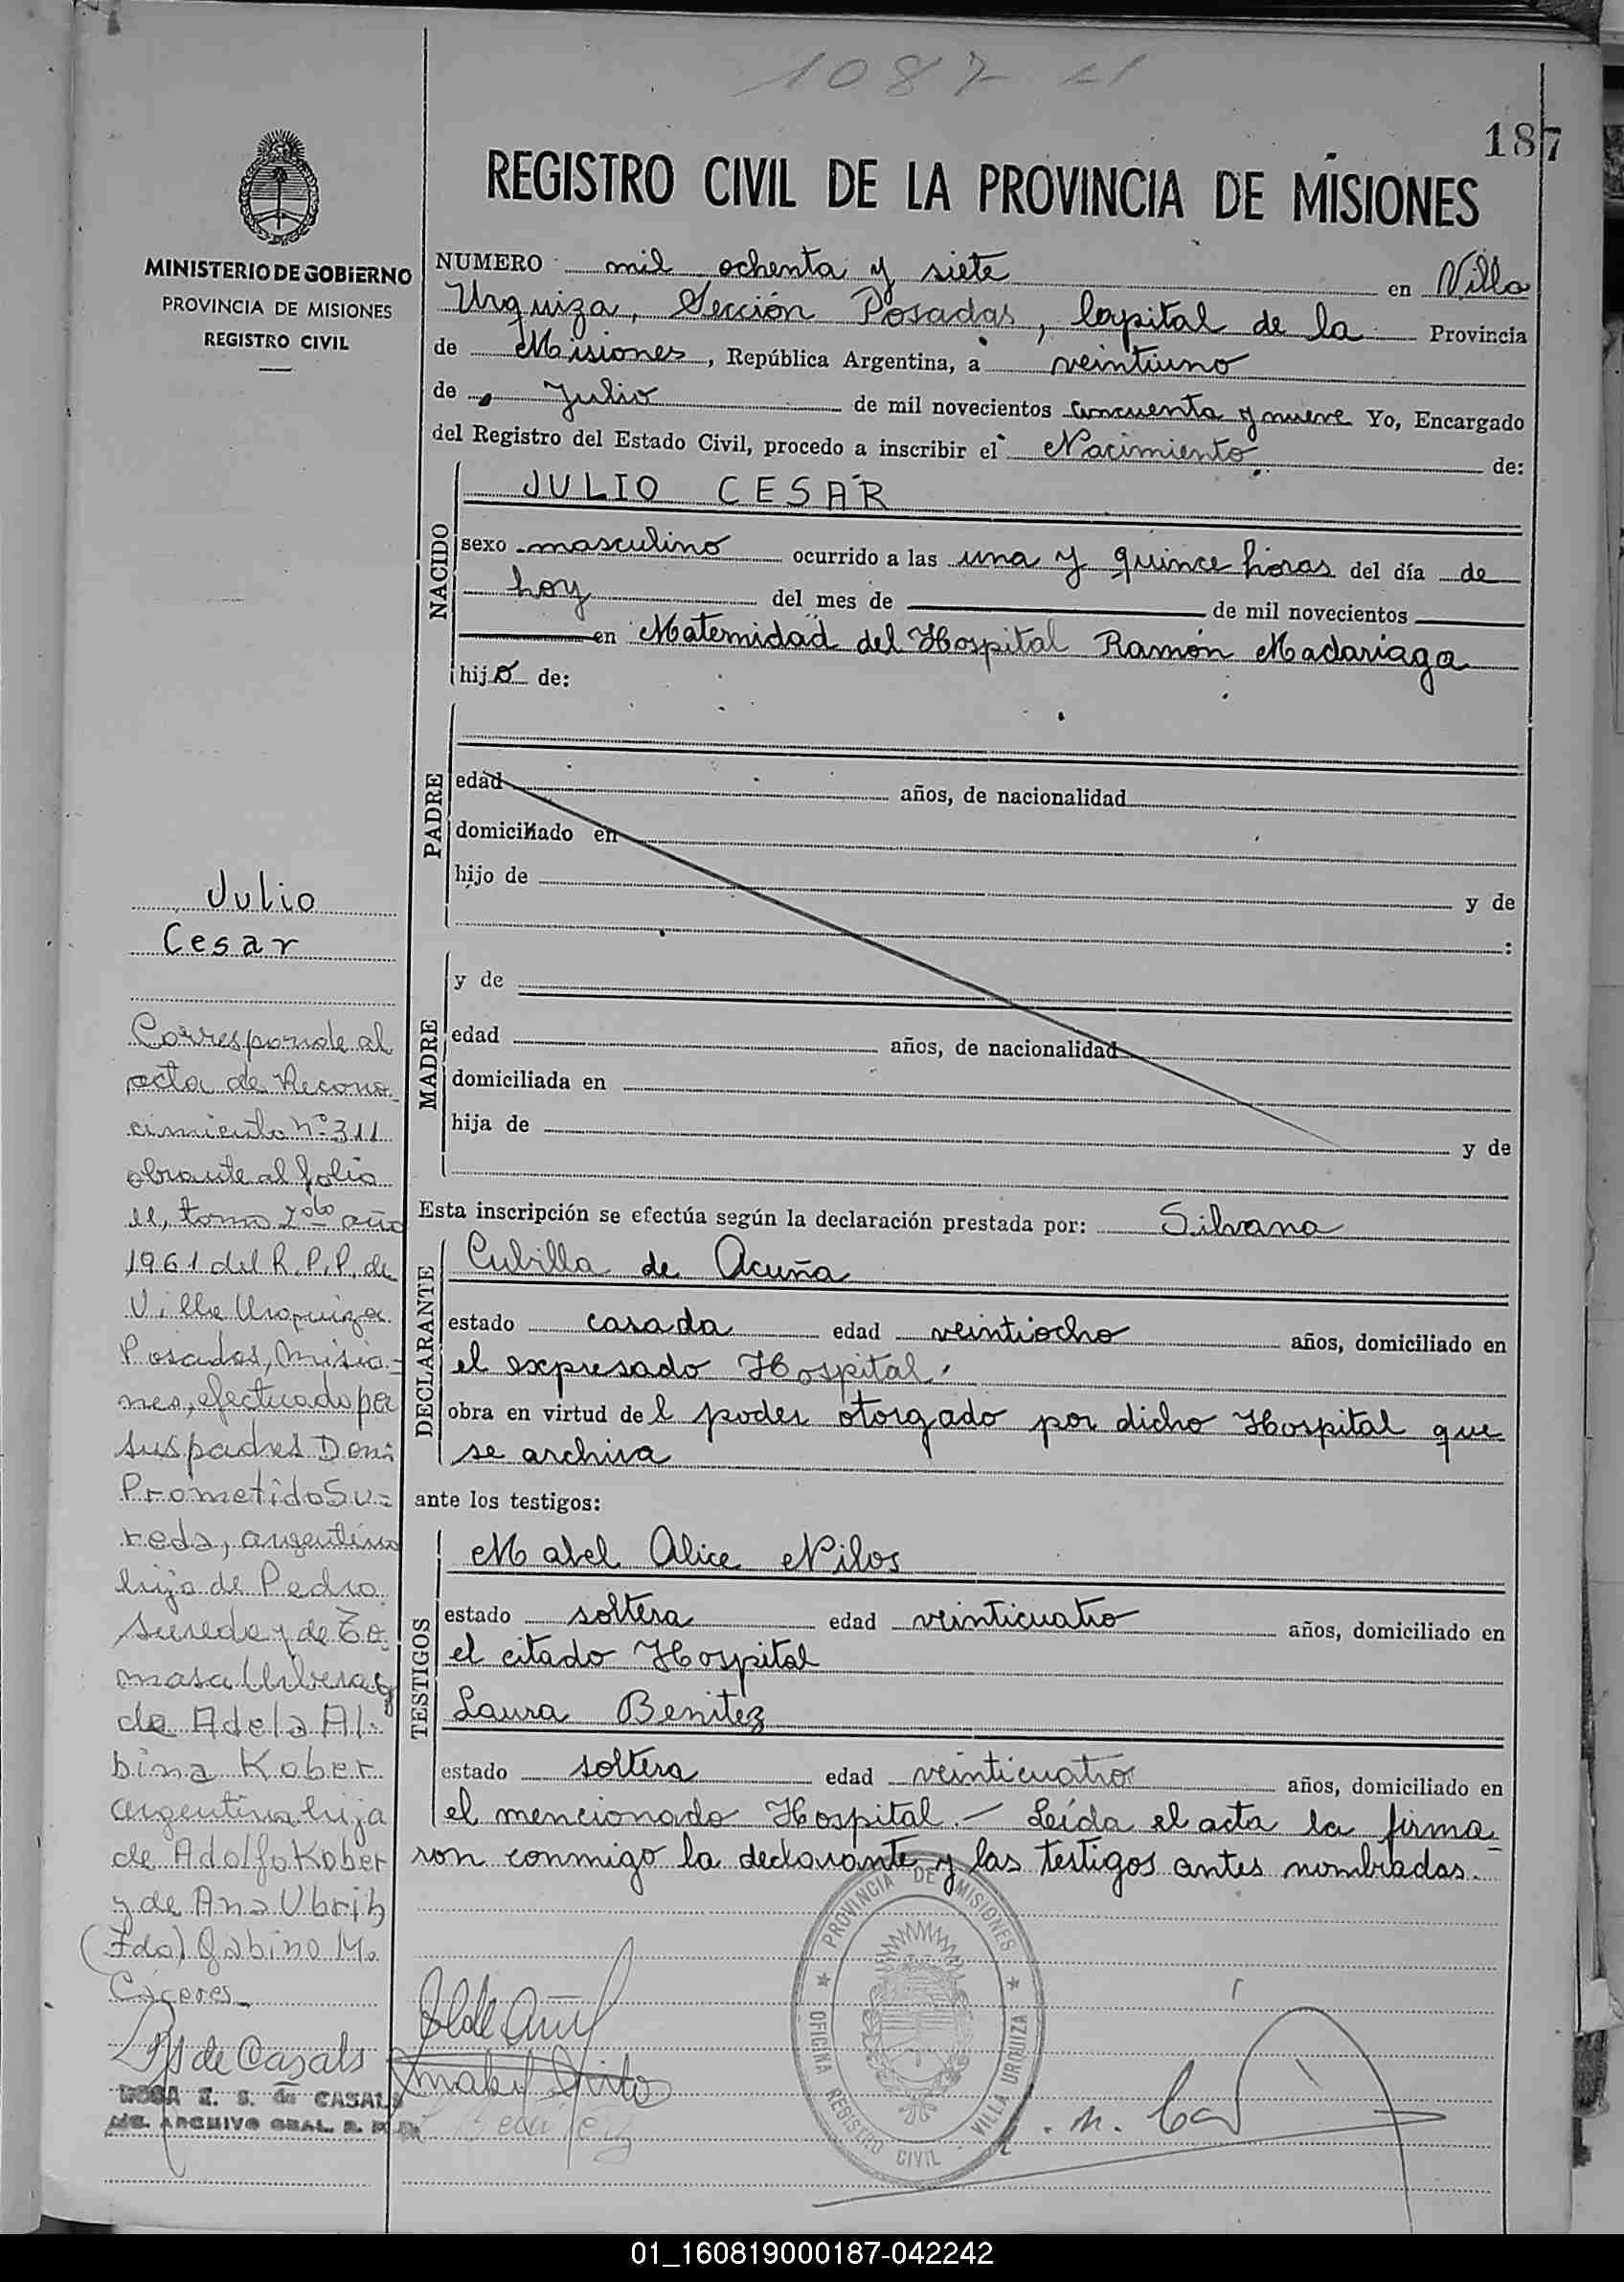 1087
187
REGISTRO CIVIL DE LA PROVINCIA DE MISIONES
MINISTERIO DE GOBIERNO
PROVINCIA DE MISIONES
REGISTRO CIVIL
NUMERO mil ochenta y siete en Villa
Urquiza, Sección Posadas, Capital de la Provincia
de Misiones, República Argentina, a veintiuno
de Julio de mil novecientos cincuenta y nueve Yo, Encargado
del Registro del Estado Civil, procedo a inscribir el Nacimiento de:
NACIDO
JULIO CESAR
sexo masculino ocurrido a las una y quince horas del día de
hoy del mes de de mil novecientos
en Maternidad del Hospital Ramón Madariaga
hijo de:
PADRE
edad años, de nacionalidad
domiciliado en
hijo de y de
:
MADRE
y de
edad años, de nacionalidad
domiciliada en
hija de y de
Esta inscripción se efectúa según la declaración prestada por: Silvana
DECLARANTE
Cubilla de Acuña
estado casada edad veintiocho años, domiciliado en
el expresado Hospital.
obra en virtud del poder otorgado por dicho Hospital que
se archiva
ante los testigos:
TESTIGOS
Mabel Alice Nilos
estado soltera edad veinticuatro años, domiciliado en
el citado Hospital
Laura Benitez
estado soltera edad veinticuatro años, domiciliado en
el mencionado Hospital.- Leída el acta la firma
ron conmigo la declarante y las testigos antes nombradas.
Julio
Cesar
Corresponde al
acta de Recono
cimiento Nº 311
obrante al folio
11, tomo 2do año
1961 del R.P.P. de
Villa Urquiza
Posadas, Misio-
nes, efectuado por
sus padres Don:
Prometido Su=
reda, argentino
hijo de Pedro
Sureda y de To
masa y
de Adela Al-
bina Kober
argentina hija
de Adolfo Kober
y de Ana Ubrih
(Fdo) Gabino M.
Cáceres
de Casals
ROSA E. S. de CASALS
ARCHIVO GRAL. R. P.
Benitez
PROVINCIA DE MISIONES
OFICINA REGISTRO CIVIL - VILLA URQUIZA
01_160819000187-042242